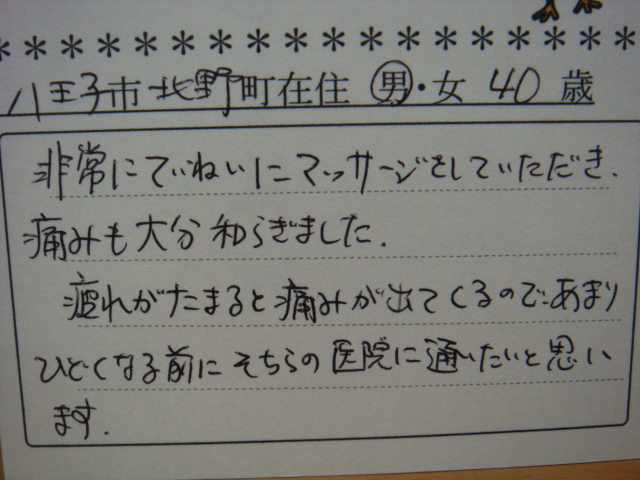 ＊＊＊＊＊＊＊＊＊＊＊＊＊＊＊＊＊＊
八王子市北野町在住 男・女 40 歳
非常にていねいにマッサージをしていただき、
痛みも大分和らぎました.
疲れがたまると痛みが出てくるので、あまり
ひどくなる前にそちらの医院に通いたいと思い
ます.